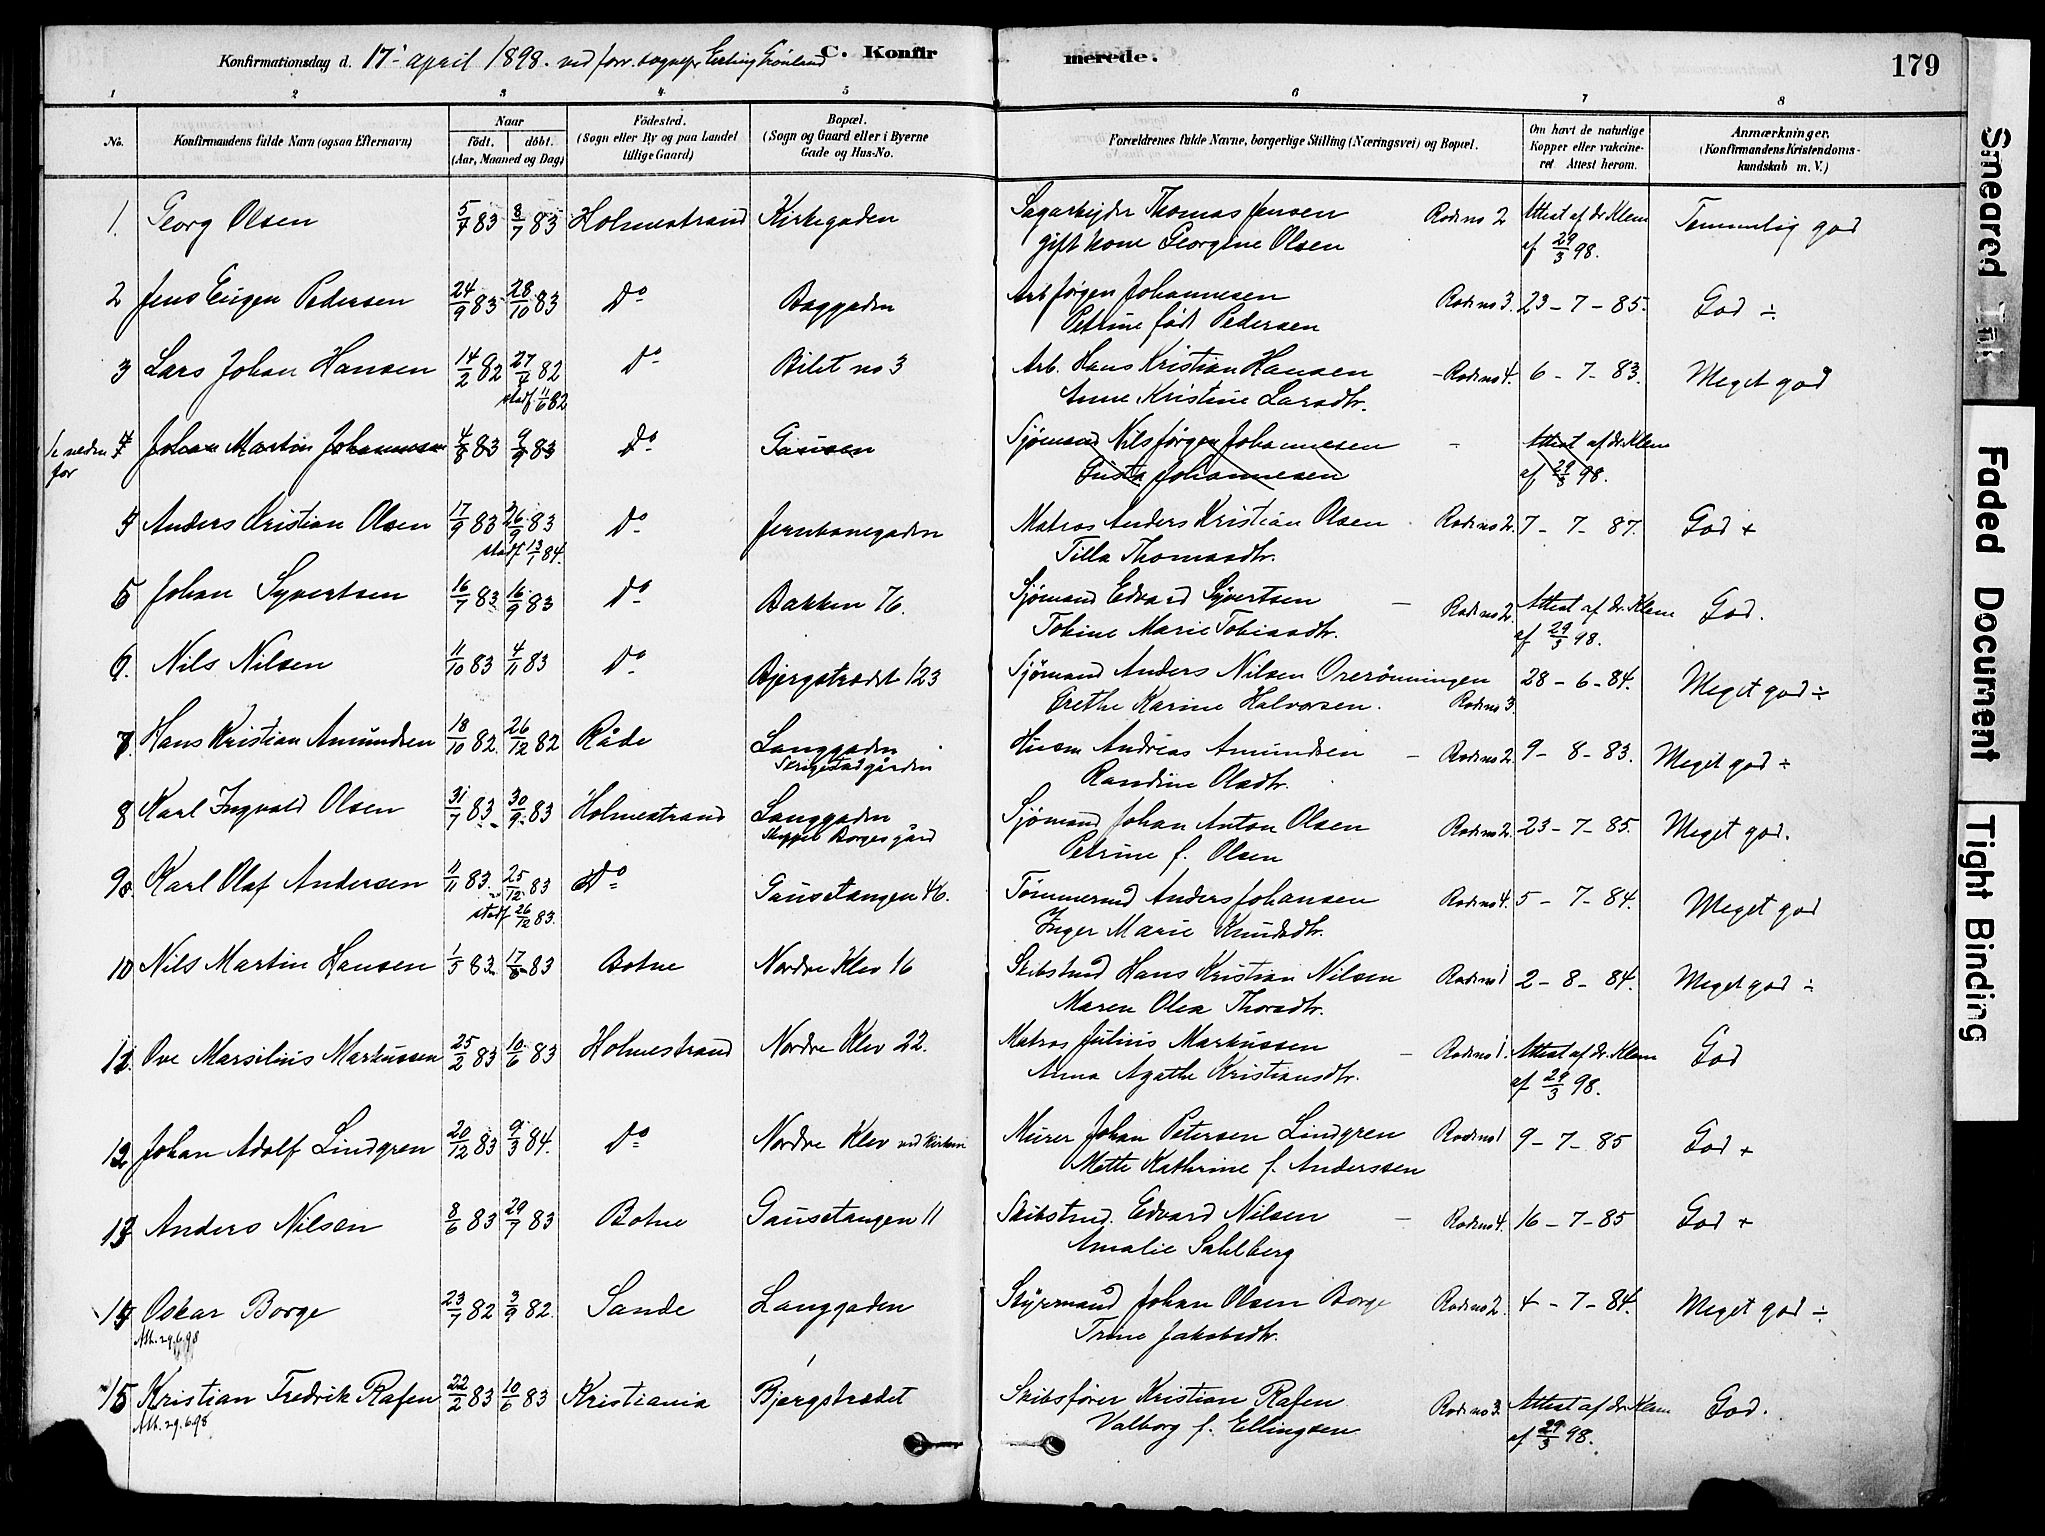 Konfirmationsdag d. 17 april 1898. ved forr. sognepr Erling Grönland C. Konfirmerede. 179
1 2 3 4 5 6 7 8
No. Konfirmandens fulde Navn (ogsaa Efternavn) Naar födt. döbt. (Aar, Maaned og Dag) Födested. (Sogn eller By og paa Landet tillige Gaard) Bopæl. (Sogn og Gaard eller i Byerne Gade og Hus-No. Forældrenes fulde Navne, borgerlige Stilling (Næringsvei) og Bopæl. Om havt de naturlige Kopper eller vakcineret Attest herom. Anmærkninger. (Konfirmandens Kristendomskundskab m. V.)
1. Georg Olsen 5/4 83 8/7 83 Holmestrand Kirkegaden Sagarbejder Thomas Jensen Rode no 2 Attest af dr. Klem Temmelig god
gift kone Georgine Olsen af 29/3 98.
2 Jens Eugen Pedersen 24/9 83 28/10 83 Do Baggaden Arb Jörgen Johannesen Rode no 3. 23-7-85. God ÷
Petrine födt Pedersen
3 Lars Johan Hansen 14/2 82 27/4 82 Do Bilet no 3 Arb. Hans Kristian Hansen - Rode no 4. 6-7-83. Meget god
stadf. 11/6 82 Anne Kristine Larsdtr.
neden for 4 Johan Martin Johannesen 4/8 83 9/9 83 Do Gausen Sjömand Nils Jörgen Johannesen - Attest af dr. Klem
Gusta Johannesen af 29/3 98.
5 Anders Kristian Olsen 17/9 83 26/9 83 Do Jernbanegaden Matros Anders Kristian Olsen Rode no 2. 7-7-87. God +
stadf 13/1 84. Tilla Thomasdtr.
5 Johan Syvertsen 16/7 83 16/9 83 Do Bakken 76. Sjömand Edvard Syvertsen - Rode no 2. Attest af dr. Klem God.
Tobine Marie Tobiasdtr. af 29/3 98.
6. Nils Nilsen 11/10 83 4/11 83 Do Bjergstrædet 123 Sjömand Anders Nilsen Orerönningen 28-6-84. Meget god ÷
Grethe Karine Halvorsen. Rode no 3.
7. Hans Kristian Amundsen 18/10 82. 26/12 82 Råde Langgaden Husm Andreas Amundsen - Rode no 2. 9-8-83. Meget god ÷
Skrigestadgården Randine Olsdtr.
8 Karl Ingvald Olsen 31/7 83 30/9 83 Holmestrand Langgaden Sjömand Johan Anton Olsen Rode no 2. 23-7-85. Meget god.
Skipper Borges gård Petrine f. Olsen
9. Karl Olaf Andersen 11/11 83. 25/12 83 Do Gausetangen 46. Tömmermd Anders Johansen Rode no 4. 5-7-84. Meget god
stadf 26/12 83. Inger Marie Knudsdtr.
10 Nils Martin Hansen 1/5 83. 17/6 83 Botne Nordre Klev 16 Skibstmd Hans Kristian Nilsen Rode no 1 2-8-84. Meget god ÷
Maren Olea Thorsdtr.
11. Ove Marsilius Markussen 25/2 83 10/6 83 Holmestrand Nordre Klev 22. Matros Julius Markussen - Rode no 1. Attest af dr. Klem God
Anna Agathe Kristiansdtr. af 29/3 98.
12 Johan Adolf Lindgren 20/12 83 9/3 84. Do Nordre Klev ved kirken Murer Johan Petersen Lindgren Rode no 1 9-7-85 God +
Mette Kathrine f. Anderssen
13 Anders Nilsen 8/6 83 29/7 83 Botne Gausetangen 11 Skibstmd. Edvard Nilsen - Rode no 4. 16-7-85 God +
Amalie Sahlberg
14 Oskar Borge 23/7 82 3/9 82. Sande Langgaden Styrmand Johan Olsen Borge Rode no 2. 4-7-84. Meget god ÷
Att. 29.6.98 Trine Jakobsdtr.
15 Kristian Fredrik Rafen 22/2 83 10/6 83 Kristiania Bjergstrædet Skibsförer Kristian Rafen Rode no 3. Attest af dr. Klem God.
Att. 29.6.98 Valborg f. Ellingsen af 29/3 98.
Smeared Ink
Faded Document
Tight Binding